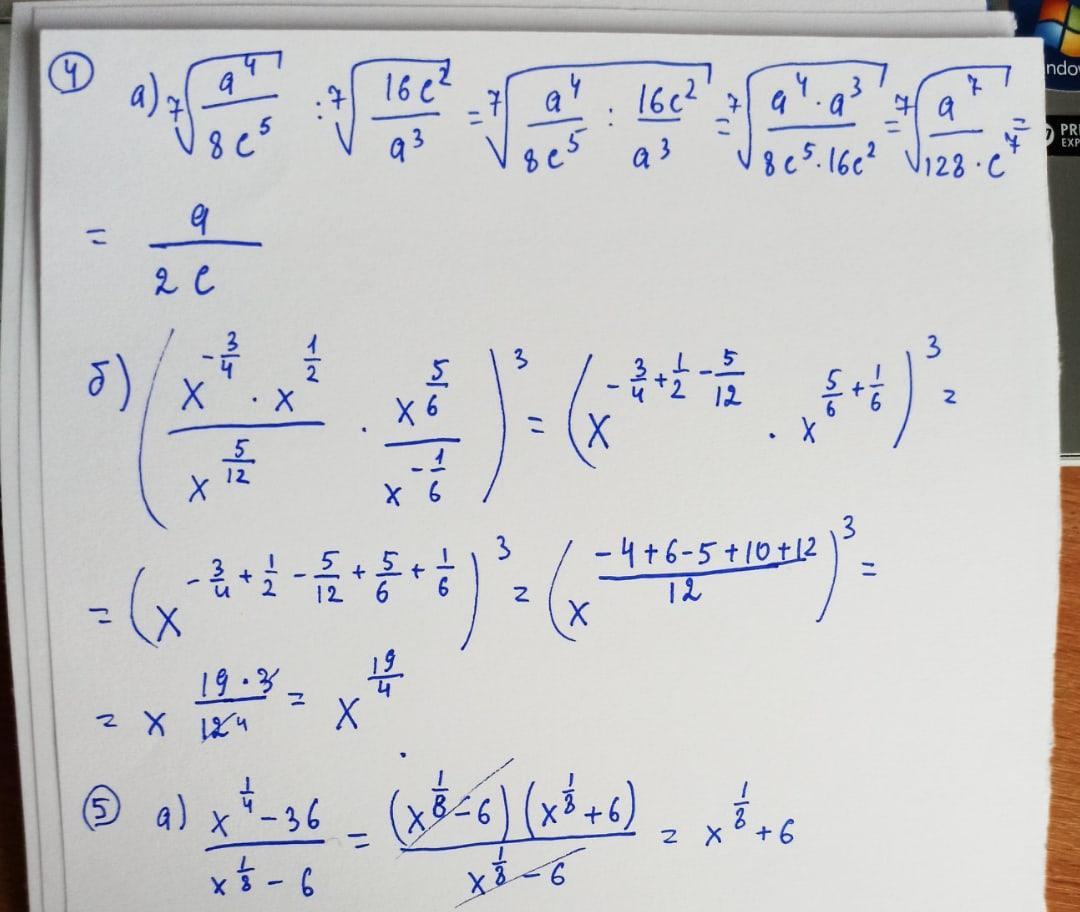 ④ а) ⁷√(a⁴/8c⁵) : ⁷√(16c²/a³) = ⁷√(a⁴/8c⁵ : 16c²/a³) = ⁷√(a⁴·a³/8c⁵·16c²) = ⁷√(a⁷/128·c⁷) =
= a/2c
б) (x^(-3/4)·x^(1/2)/x^(5/12) · x^(5/6)/x^(-1/6))³ = (x^(-3/4+1/2-5/12) · x^(5/6+1/6))³ =
= (x^(-3/4+1/2-5/12+5/6+1/6))³ = (x^((-4+6-5+10+12)/12))³ =
= x^(19·3/12 4) = x^(19/4)
⑤ а) (x^(1/4)-36)/(x^(1/8)-6) = (x^(1/8)-6)(x^(1/8)+6)/(x^(1/8)-6) = x^(1/8)+6